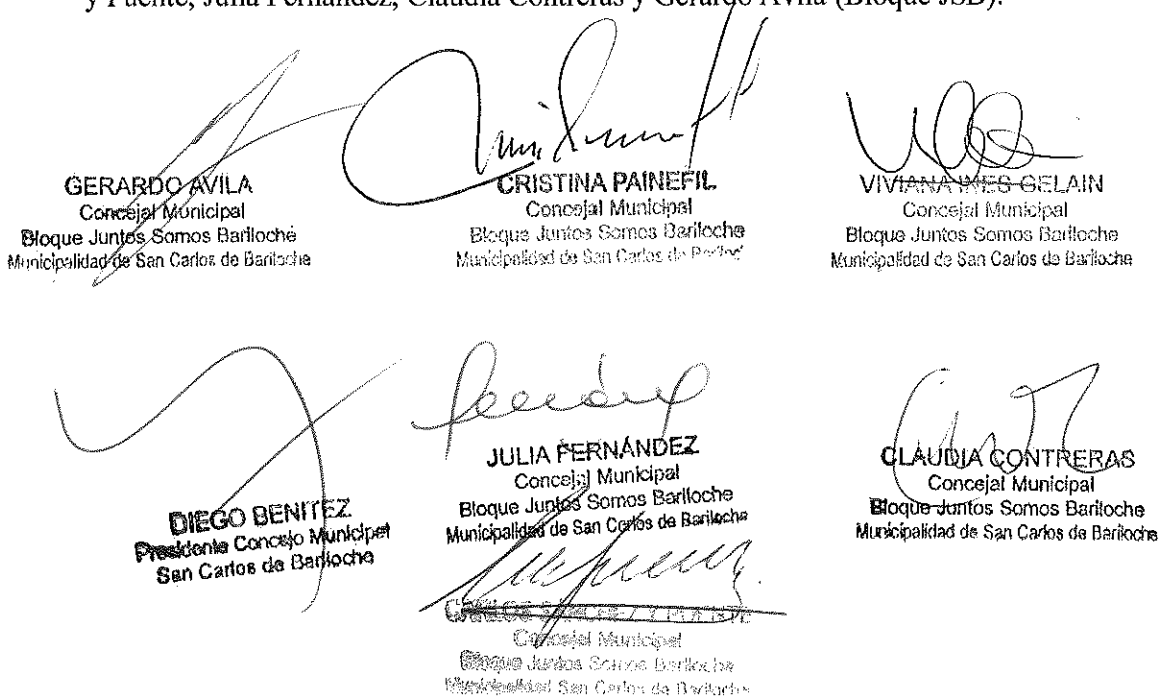 y Puente, Julia Fernández, Claudia Contreras y Gerardo Avila (Bloque JSB).
GERARDO AVILA
Concejal Municipal
Bloque Juntos Somos Bariloche
Municipalidad de San Carlos de Bariloche
CRISTINA PAINEFIL
Concejal Municipal
Bloque Juntos Somos Bariloche
Municipalidad de San Carlos de
VIVIANA INES GELAIN
Concejal Municipal
Bloque Juntos Somos Bariloche
Municipalidad de San Carlos de Bariloche
DIEGO BENITEZ
Presidente Concejo Municipal
San Carlos de Bariloche
JULIA FERNÁNDEZ
Concejal Municipal
Bloque Juntos Somos Bariloche
Municipalidad de San Carlos de Bariloche
CLAUDIA CONTRERAS
Concejal Municipal
Bloque Juntos Somos Bariloche
Municipalidad de San Carlos de Bariloche
CARLOS SANCHEZ Y PUENTE
Concejal Municipal
Bloque Juntos Somos Bariloche
Municipalidad San Carlos de Bariloche